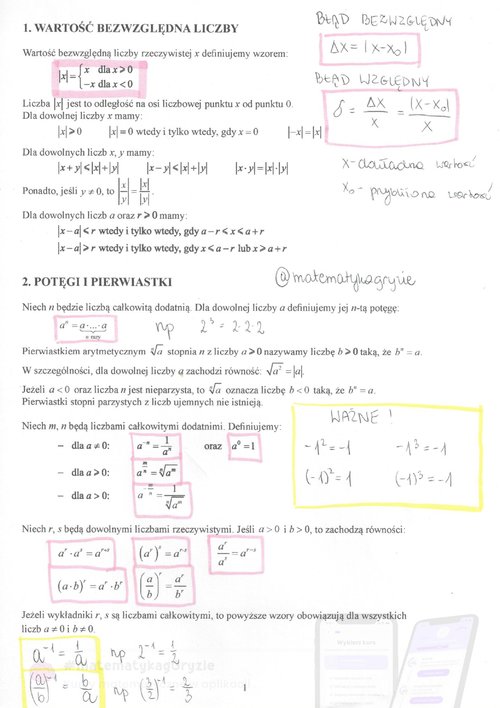 1. WARTOŚĆ BEZWZGLĘDNA LICZBY
BŁĄD BEZWZGLĘDNY
Δx = |x-x₀|
Wartość bezwzględną liczby rzeczywistej x definiujemy wzorem:
|x| = { x dla x ≥ 0
−x dla x < 0
BŁĄD WZGLĘDNY
δ = Δx/x = |x-x₀|/x
Liczba |x| jest to odległość na osi liczbowej punktu x od punktu 0.
Dla dowolnej liczby x mamy:
|x| ≥ 0 |x| = 0 wtedy i tylko wtedy, gdy x = 0 |−x| = |x|
x - dokładna wartość
x₀ - przybliżona wartość
Dla dowolnych liczb x, y mamy:
|x + y| ≤ |x| + |y| |x − y| ≤ |x| + |y| |x · y| = |x| · |y|
Ponadto, jeśli y ≠ 0, to |x/y| = |x|/|y|.
Dla dowolnych liczb a oraz r ≥ 0 mamy:
|x − a| ≤ r wtedy i tylko wtedy, gdy a − r ≤ x ≤ a + r
|x − a| ≥ r wtedy i tylko wtedy, gdy x ≤ a − r lub x ≥ a + r
2. POTĘGI I PIERWIASTKI
@matematykagryzie
Niech n będzie liczbą całkowitą dodatnią. Dla dowolnej liczby a definiujemy jej n-tą potęgę:
aⁿ = a · ... · a
n razy
np 2³ = 2·2·2
Pierwiastkiem arytmetycznym ⁿ√a stopnia n z liczby a ≥ 0 nazywamy liczbę b ≥ 0 taką, że bⁿ = a.
W szczególności, dla dowolnej liczby a zachodzi równość: √a² = |a|.
Jeżeli a < 0 oraz liczba n jest nieparzysta, to ⁿ√a oznacza liczbę b < 0 taką, że bⁿ = a.
Pierwiastki stopni parzystych z liczb ujemnych nie istnieją.
Niech m, n będą liczbami całkowitymi dodatnimi. Definiujemy:
– dla a ≠ 0: a⁻ⁿ = 1/aⁿ oraz a⁰ = 1
– dla a ≥ 0: a^(m/n) = ⁿ√aᵐ
– dla a > 0: a^(−m/n) = 1/ⁿ√aᵐ
WAŻNE !
-1² = -1 -1³ = -1
(-1)² = 1 (-1)³ = -1
Niech r, s będą dowolnymi liczbami rzeczywistymi. Jeśli a > 0 i b > 0, to zachodzą równości:
aʳ · aˢ = aʳ⁺ˢ (aʳ)ˢ = aʳ·ˢ aʳ/aˢ = aʳ⁻ˢ
(a · b)ʳ = aʳ · bʳ (a/b)ʳ = aʳ/bʳ
Jeżeli wykładniki r, s są liczbami całkowitymi, to powyższe wzory obowiązują dla wszystkich
liczb a ≠ 0 i b ≠ 0.
a⁻¹ = 1/a np 2⁻¹ = 1/2
(a/b)⁻¹ = b/a np (3/2)⁻¹ = 2/3
1
Wybierz kurs